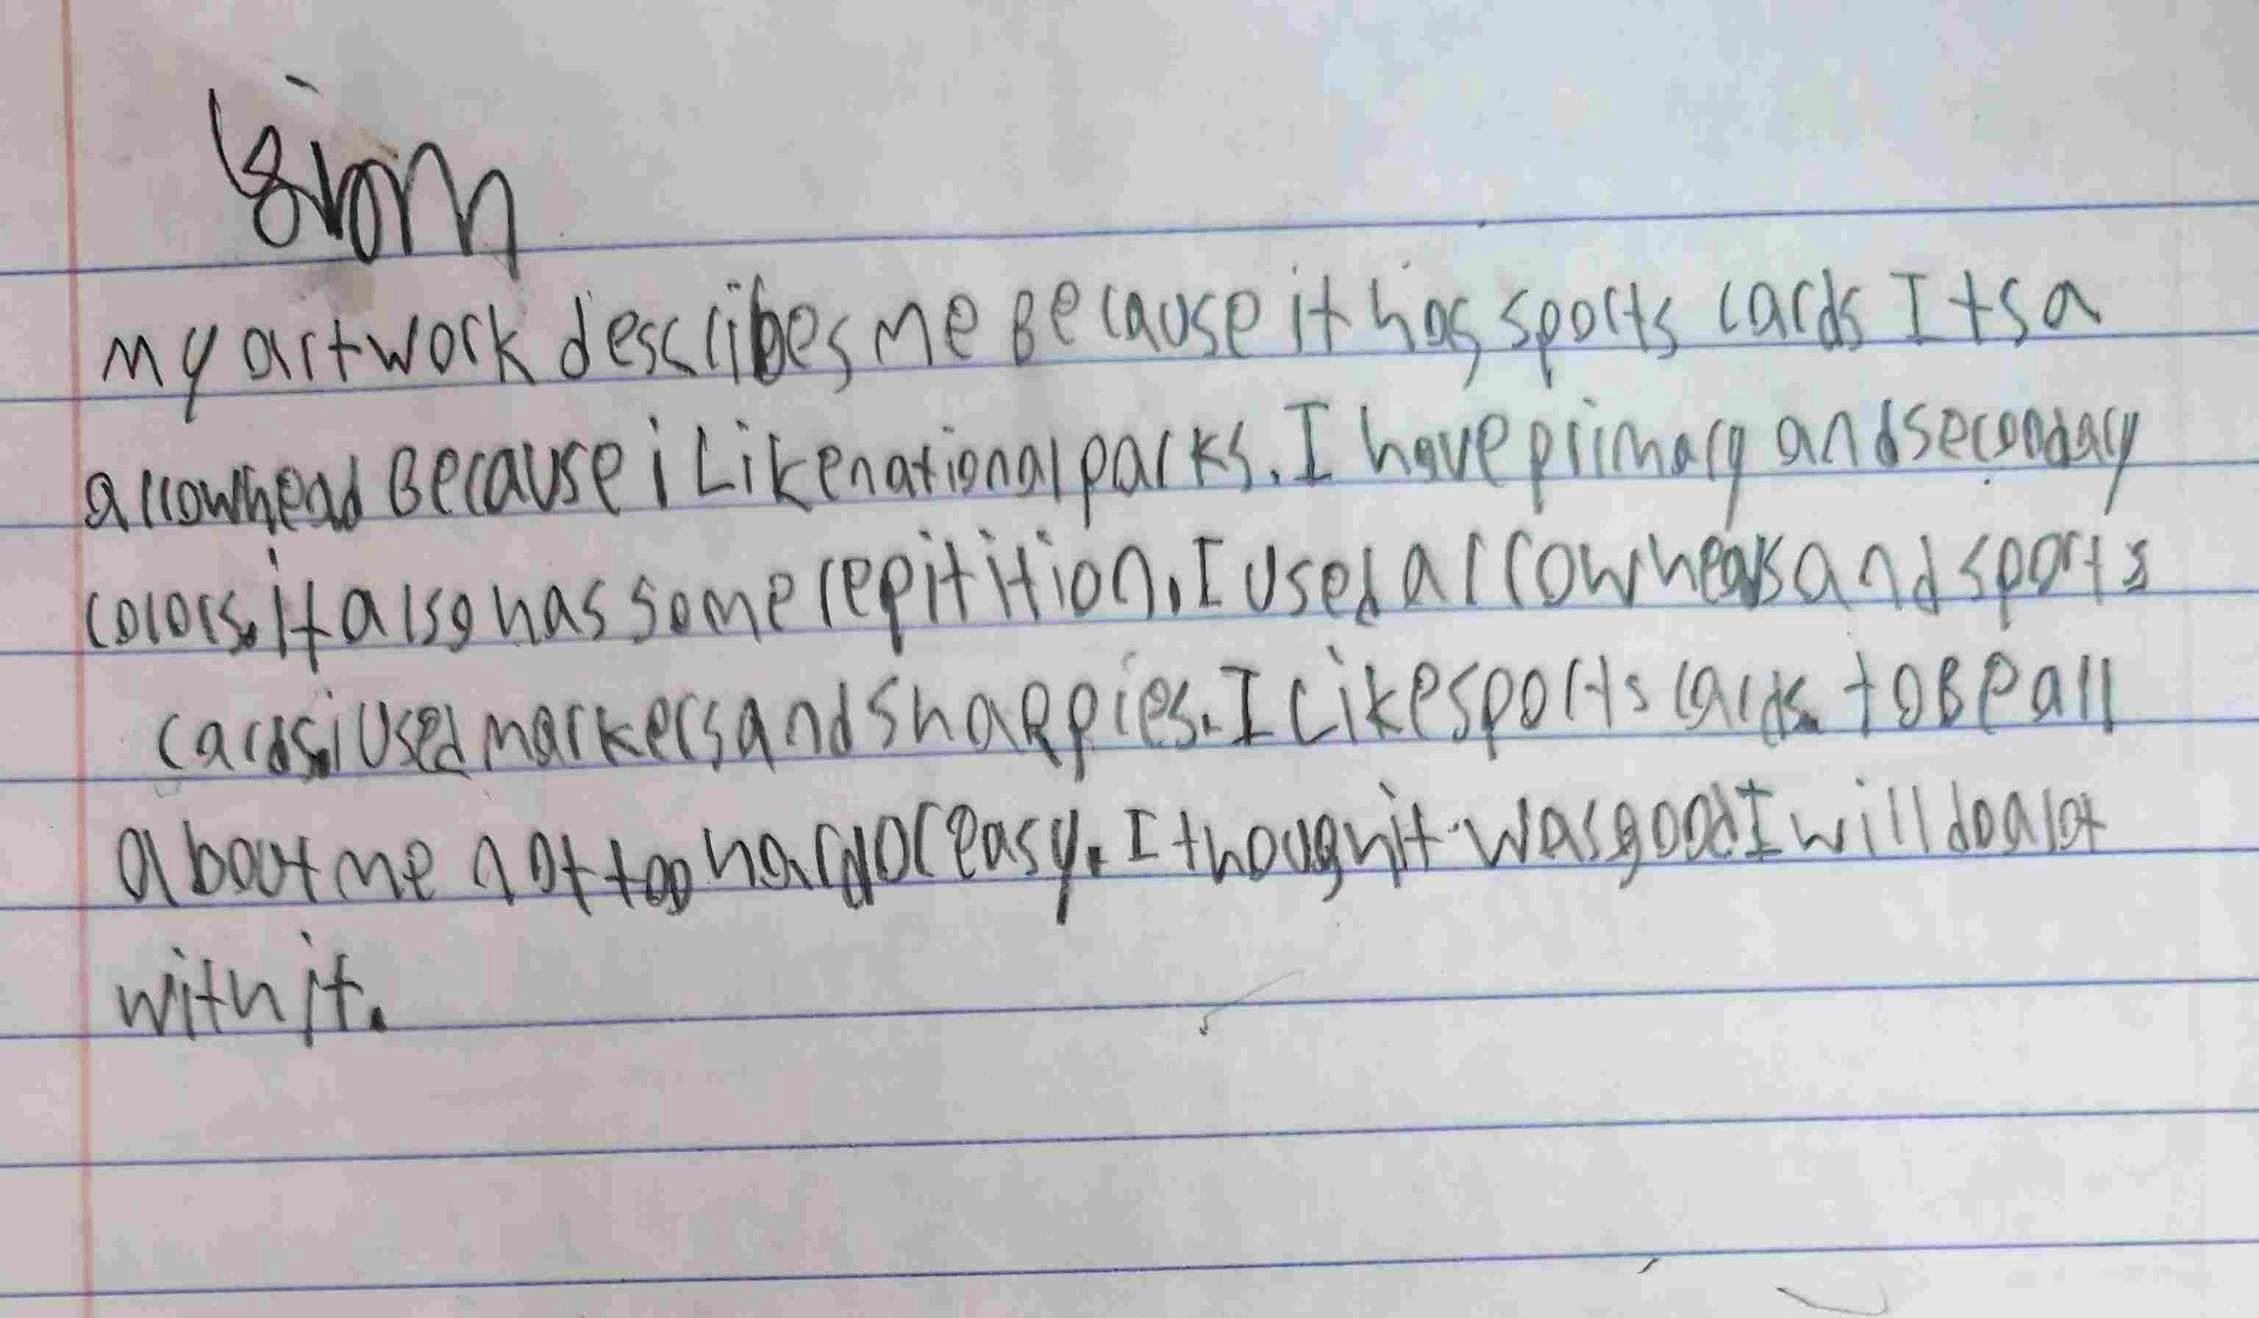 my artwork describes me Because it has sports cards Its a
arrowhead Because i Like national parks. I have priimary and secondary
colors. it also has some repitition. I used arrowheads and sports
cards. i used markers and sharpies. I Like sports cards. to Be all
about me not too hard or easy. I though it was good I will do alot
with it.